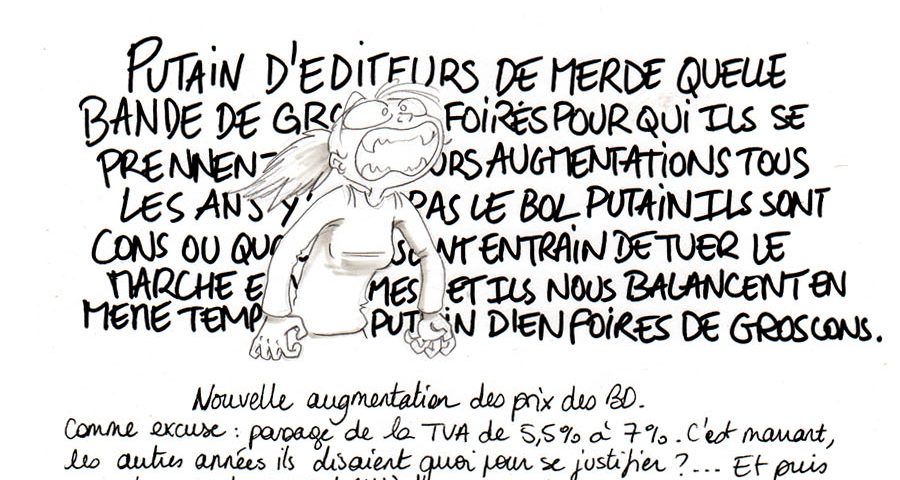 PUTAIN D'EDITEURS DE MERDE QUELLE
BANDE DE GROS FOIRÉS POUR QUI ILS SE
PRENNENT URS AUGMENTATIONS TOUS
LES ANS Y PAS LE BOL PUTAIN ILS SONT
CONS OU QUO SONT ENTRAIN DE TUER LE
MARCHE E MES ET ILS NOUS BALANCENT EN
MEME TEMP PUTAIN D'ENFOIRES DE GROS CONS.
Nouvelle augmentation des prix des BD.
Comme excuse : passage de la TVA de 5,5% à 7%. C'est marrant,
les autres années ils disaient quoi pour se justifier ?... Et puis